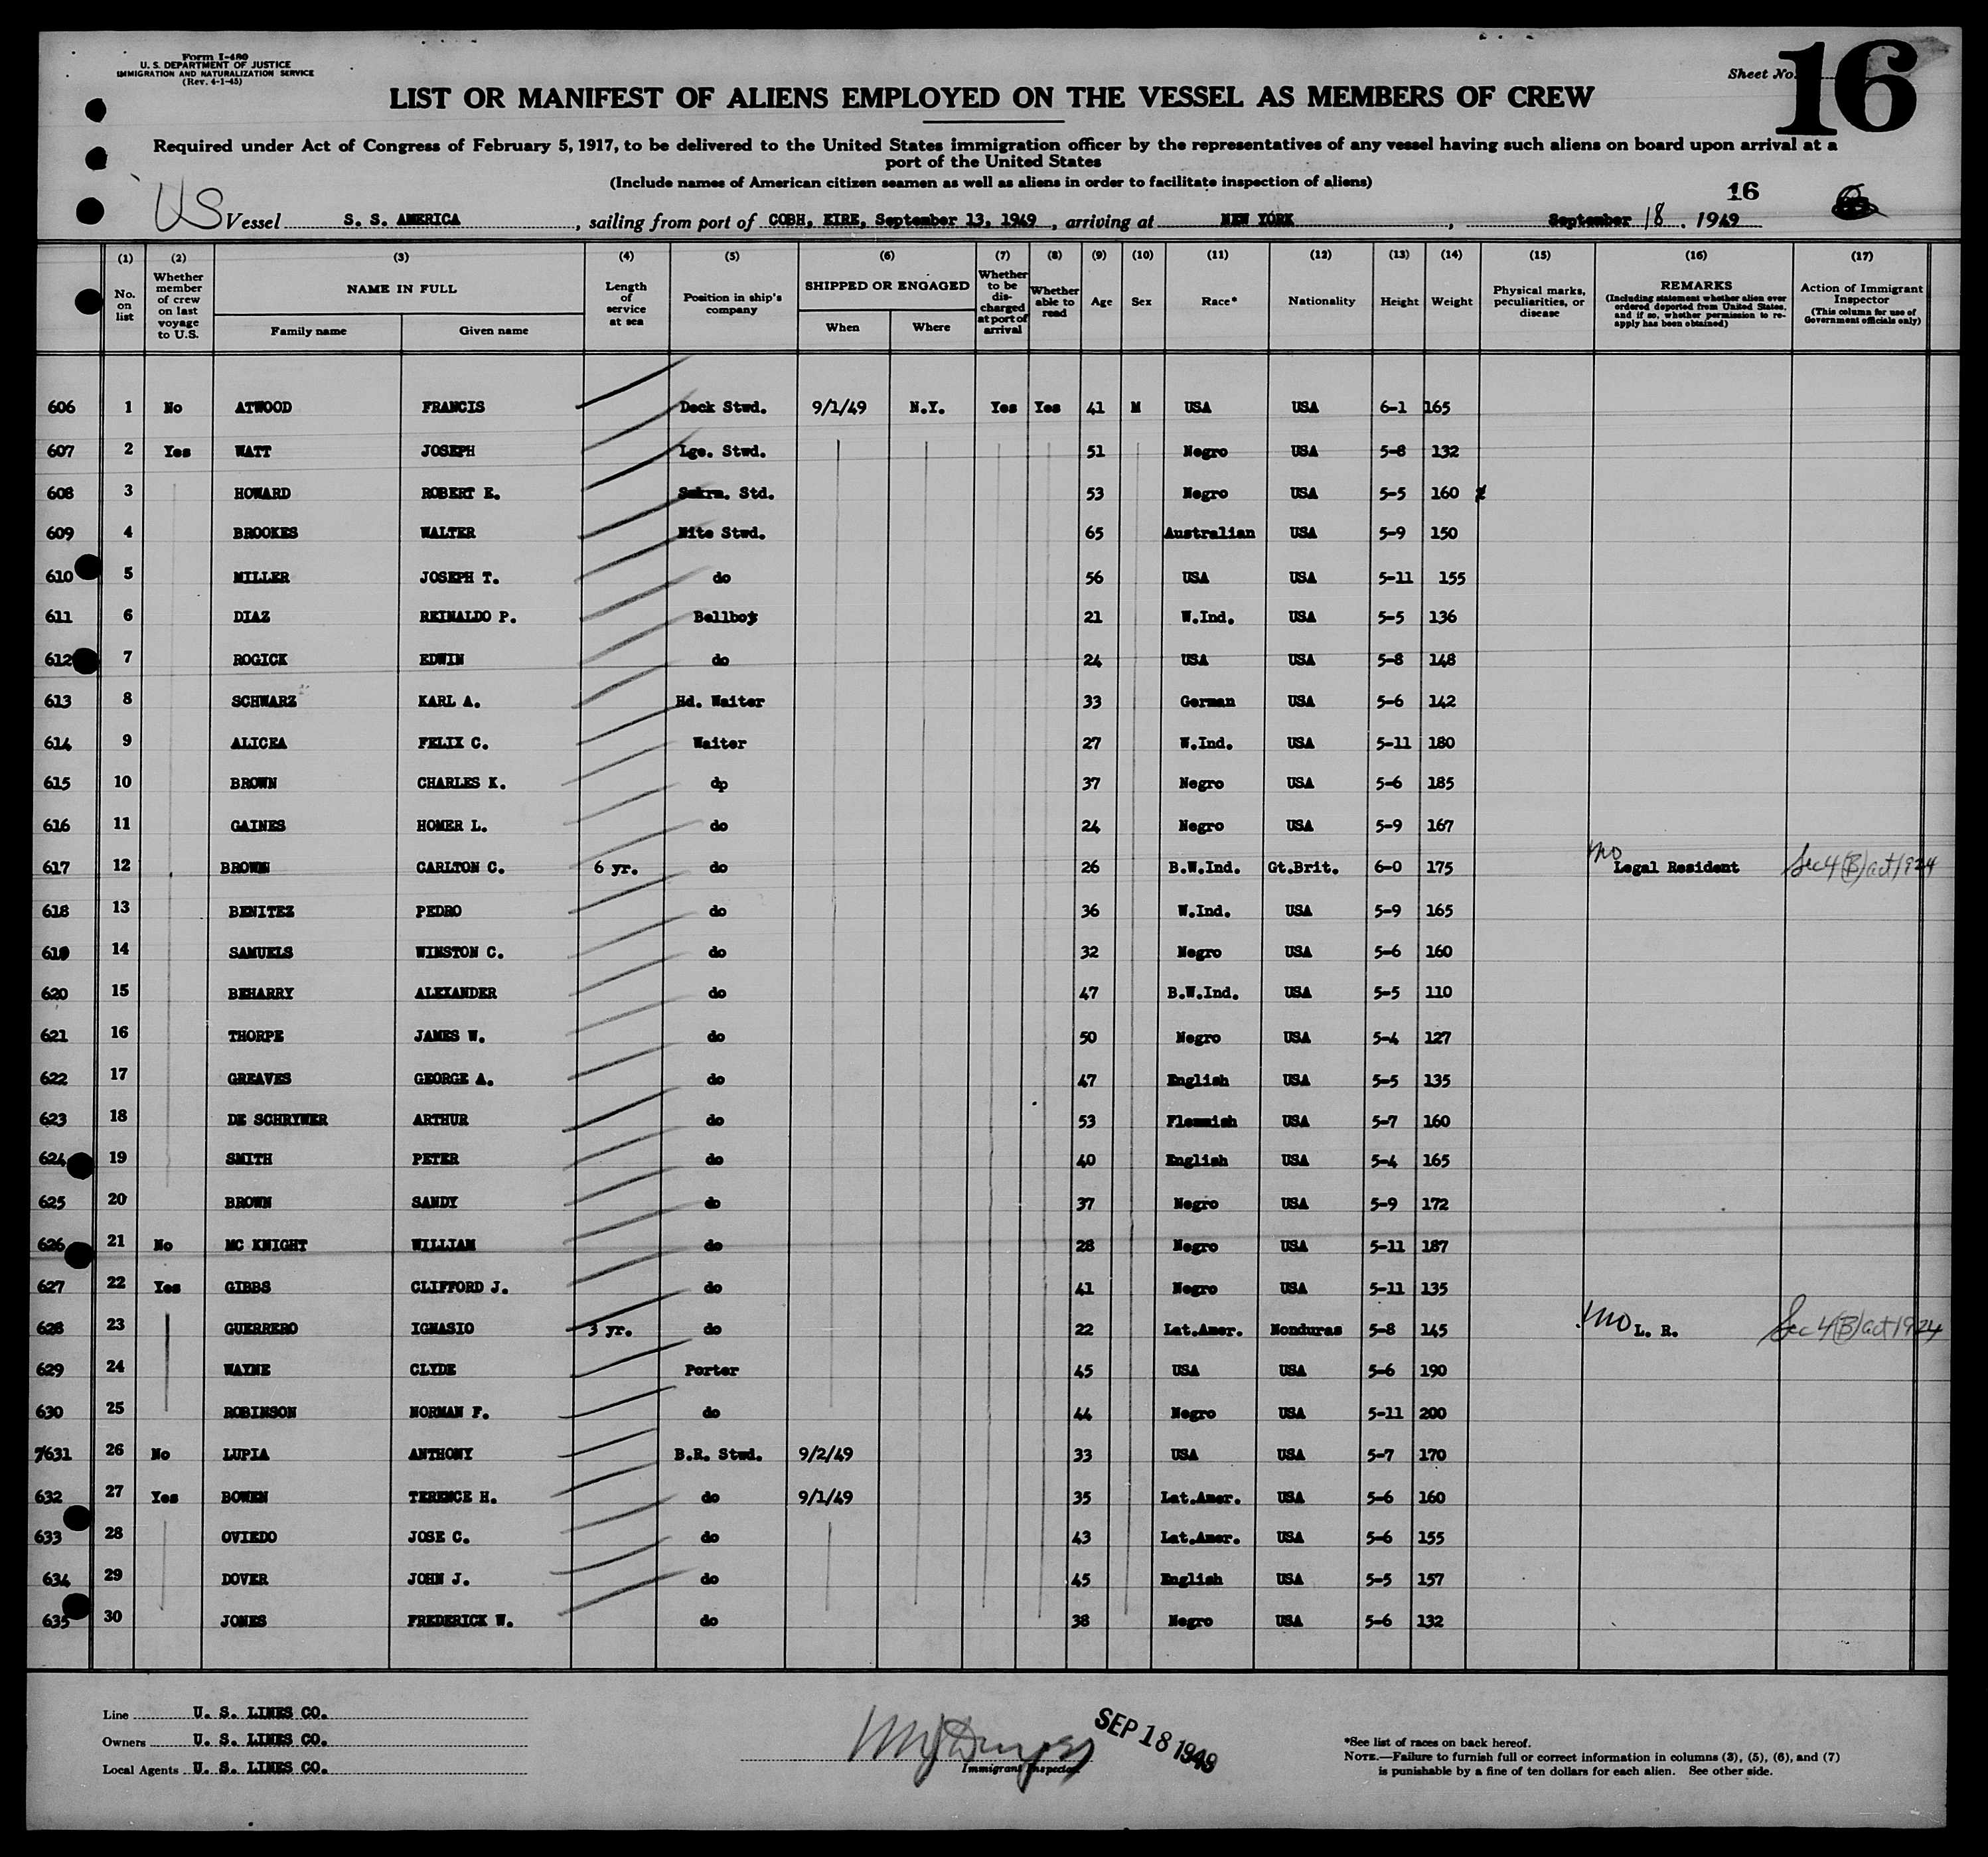 Form I-480
U. S. DEPARTMENT OF JUSTICE
IMMIGRATION AND NATURALIZATION SERVICE
(Rev. 4-1-45)
Sheet No. 16
LIST OR MANIFEST OF ALIENS EMPLOYED ON THE VESSEL AS MEMBERS OF CREW
Required under Act of Congress of February 5, 1917, to be delivered to the United States immigration officer by the representatives of any vessel having such aliens on board upon arrival at a
port of the United States
(Include names of American citizen seamen as well as aliens in order to facilitate inspection of aliens)
16
US Vessel S. S. AMERICA, sailing from port of COBH, EIRE, September 13, 1949, arriving at NEW YORK, September 18, 1949
(1) No. on list (2) Whether member of crew on last voyage to U.S. (3) NAME IN FULL Family name Given name (4) Length of service at sea (5) Position in ship's company (6) SHIPPED OR ENGAGED When Where (7) Whether to be discharged at port of arrival (8) Whether able to read (9) Age (10) Sex (11) Race* (12) Nationality (13) Height (14) Weight (15) Physical marks, peculiarities, or disease (16) REMARKS (Including statement whether alien ever ordered deported from United States, and if so, whether permission to re-apply has been obtained) (17) Action of Immigrant Inspector (This column for use of Government officials only)
606 1 No ATWOOD FRANCIS Deck Stwd. 9/1/49 N.Y. Yes Yes 41 M USA USA 6-1 165
607 2 Yes WATT JOSEPH Lge. Stwd. 51 Negro USA 5-8 132
608 3 HOWARD ROBERT E. Smkrm. Std. 53 Negro USA 5-5 160
609 4 BROOKES WALTER Nite Stwd. 65 Australian USA 5-9 150
610 5 MILLER JOSEPH T. do 56 USA USA 5-11 155
611 6 DIAZ REINALDO P. Bellboy 21 W.Ind. USA 5-5 136
612 7 ROGICK EDWIN do 24 USA USA 5-8 148
613 8 SCHWARZ KARL A. Hd. Waiter 33 German USA 5-6 142
614 9 ALICEA FELIX C. Waiter 27 W.Ind. USA 5-11 180
615 10 BROWN CHARLES K. dp 37 Negro USA 5-6 185
616 11 GAINES HOMER L. do 24 Negro USA 5-9 167
617 12 BROWN CARLTON C. 6 yr. do 26 B.W.Ind. Gt.Brit. 6-0 175 no Legal Resident Sec 4(B) act 1924
618 13 BENITEZ PEDRO do 36 W.Ind. USA 5-9 165
619 14 SAMUELS WINSTON C. do 32 Negro USA 5-6 160
620 15 BEHARRY ALEXANDER do 47 B.W.Ind. USA 5-5 110
621 16 THORPE JAMES W. do 50 Negro USA 5-4 127
622 17 GREAVES GEORGE A. do 47 English USA 5-5 135
623 18 DE SCHRYWER ARTHUR do 53 Flemmish USA 5-7 160
624 19 SMITH PETER do 40 English USA 5-4 165
625 20 BROWN SANDY do 37 Negro USA 5-9 172
626 21 No MC KNIGHT WILLIAM do 28 Negro USA 5-11 187
627 22 Yes GIBBS CLIFFORD J. do 41 Negro USA 5-11 135
628 23 GUERRERO IGNASIO 3 yr. do 22 Lat.Amer. Honduras 5-8 145 no L. R. Sec 4(B) act 1924
629 24 WAYNE CLYDE Porter 45 USA USA 5-6 190
630 25 ROBINSON NORMAN F. do 44 Negro USA 5-11 200
631 26 No LUPIA ANTHONY B.R. Stwd. 9/2/49 33 USA USA 5-7 170
632 27 Yes BOWEN TERENCE H. do 9/1/49 35 Lat.Amer. USA 5-6 160
633 28 OVIEDO JOSE C. do 43 Lat.Amer. USA 5-6 155
634 29 DOVER JOHN J. do 45 English USA 5-5 157
635 30 JONES FREDERICK W. do 38 Negro USA 5-6 132
Line U. S. LINES CO.
Owners U. S. LINES CO.
Local Agents U. S. LINES CO.
Immigrant Inspector
SEP 18 1949
*See list of races on back hereof.
NOTE.—Failure to furnish full or correct information in columns (3), (5), (6), and (7)
is punishable by a fine of ten dollars for each alien. See other side.